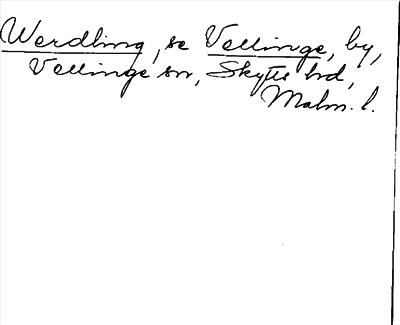 Werdling, se Vellinge, by,
Vellinge sn, Skytts hd,
Malm. l.